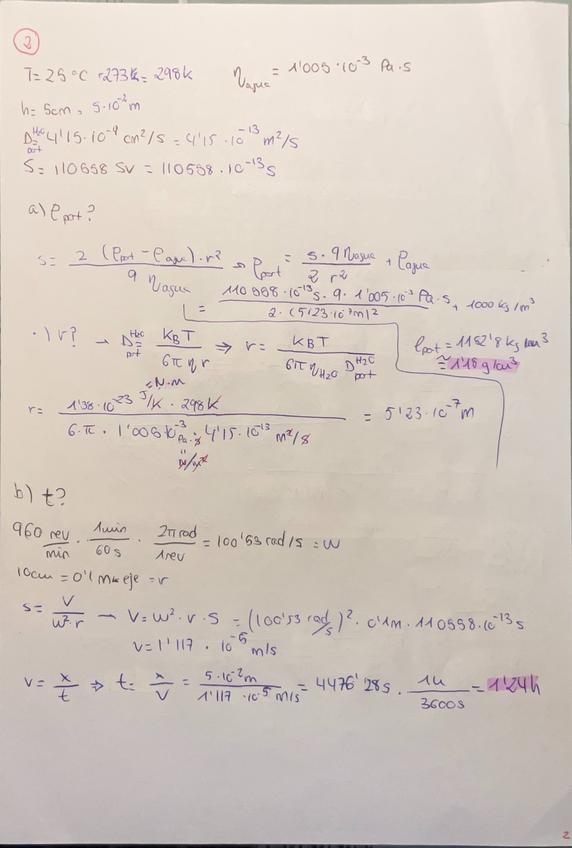 2
T= 25 °C +273K = 298K   η agua = 1'005·10⁻³ Pa·s
h= 5cm = 5·10⁻² m
D part H₂O = 4'15·10⁻⁹ cm²/s = 4'15·10⁻¹³ m²/s
S = 110558 Sv = 110558·10⁻¹³ s
a) ρpart?
s = 2 (ρpart − ρagua)·r² / 9 ηagua → ρpart = s·9 ηagua / 2 r² + ρagua
= 110558·10⁻¹³ s · 9 · 1'005·10⁻³ Pa·s / 2·(5'23·10⁻⁷ m)² + 1000 kg/m³
·) r? → D part H₂O = KBT / 6π η r ⇒ r = KBT / 6π ηH₂O D part H₂O
ρpart = 1182'8 kg/m³
≅ 1'18 g/cm³
= N·m
r = 1'38·10⁻²³ J/K · 298K / 6·π · 1'005·10⁻³ Pa·s · 4'15·10⁻¹³ m²/s = 5'23·10⁻⁷ m
N/m²
b) t?
960 rev/min · 1min/60s · 2π rad/1rev = 100'53 rad/s = w
10cm = 0'1 m eje = r
s = V / w²·r → V = w²·r·S = (100'53 rad/s)² · 0'1m · 110558·10⁻¹³ s
V = 1'117 · 10⁻⁵ m/s
v = x/t ⇒ t = x/V = 5·10⁻² m / 1'117·10⁻⁵ m/s = 4476'28s · 1h/3600s = 1'24h
2